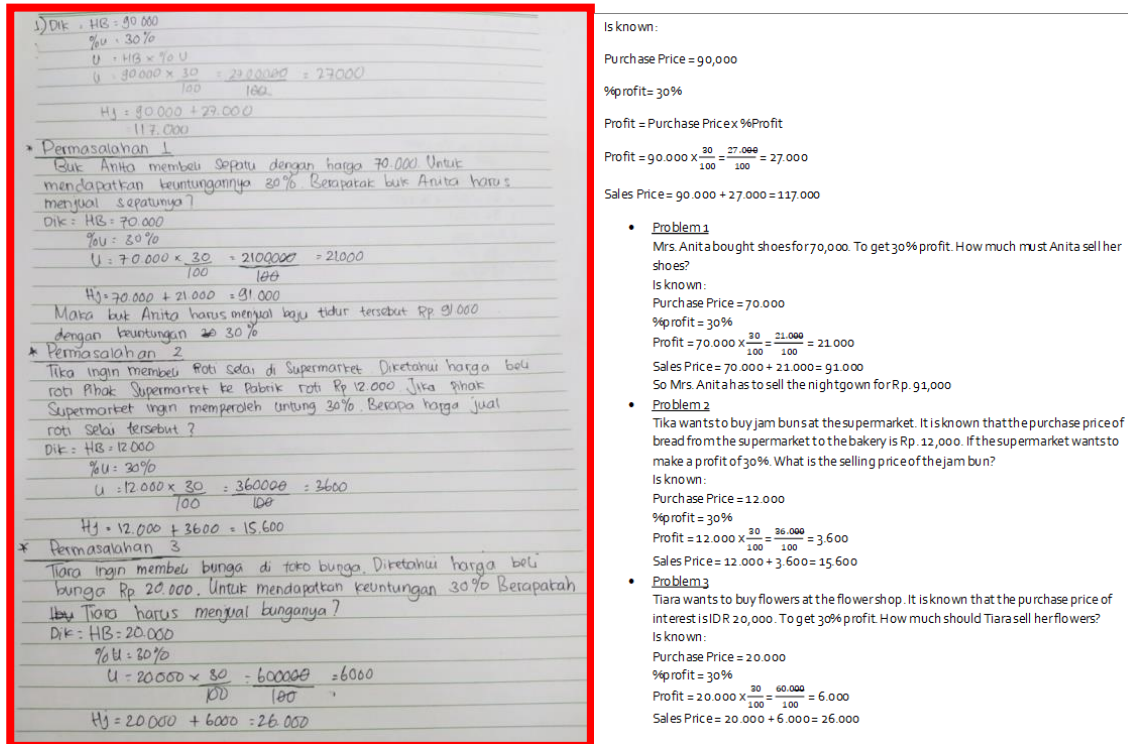 1) Dik : HB = 90 000
%U = 30%
U = HB x % U
U = 90.000 x 30/100 = 2700000/100 = 27000
Hj = 90.000 + 27.000
= 117.000
* Permasalahan 1
Buk Anita membeli sepatu dengan harga 70.000. Untuk
mendapatkan keuntungannya 30%. Berapakah buk Anita harus
menjual sepatunya?
Dik = HB = 70.000
%U = 30%
U = 70.000 x 30/100 = 2100000/100 = 21000
Hj = 70.000 + 21.000 = 91.000
Maka buk Anita harus menjual baju tidur tersebut Rp 91.000
dengan keuntungan 30%
* Permasalahan 2
Tika ingin membeli Roti selai di Supermarket Diketahui harga beli
roti Pihak Supermarket ke Pabrik roti Rp 12.000. Jika pihak
Supermarket ingin memperoleh untung 30%. Berapa harga jual
roti selai tersebut?
Dik = HB = 12.000
%U = 30%
U = 12.000 x 30/100 = 360000/100 = 3600
Hj = 12.000 + 3600 = 15.600
* Permasalahan 3
Tiara ingin membeli bunga di toko bunga. Diketahui harga beli
bunga Rp 20.000. Untuk mendapatkan keuntungan 30% Berapakah
Ibu Tiara harus menjual bunganya?
Dik = HB = 20.000
%U = 30%
U = 20000 x 30/100 = 600000/100 = 6000
Hj = 20.000 + 6000 = 26.000
Is known:
Purchase Price = 90,000
%profit= 30%
Profit = Purchase Price x %Profit
Profit = 90.000 x 30/100 = 27.000/100 = 27.000
Sales Price = 90.000 + 27.000 = 117.000
• Problem 1
Mrs. Anita bought shoes for 70,000. To get 30% profit. How much must Anita sell her
shoes?
Is known:
Purchase Price = 70.000
%profit = 30%
Profit = 70.000 x 30/100 = 21.000/100 = 21.000
Sales Price = 70.000 + 21.000 = 91.000
So Mrs. Anita has to sell the nightgown for Rp. 91,000
• Problem 2
Tika wants to buy jam buns at the supermarket. It is known that the purchase price of
bread from the supermarket to the bakery is Rp. 12,000. If the supermarket wants to
make a profit of 30%. What is the selling price of the jam bun?
Is known:
Purchase Price = 12.000
%profit = 30%
Profit = 12.000 x 30/100 = 36.000/100 = 3.600
Sales Price = 12.000 + 3.600 = 15.600
• Problem 3
Tiara wants to buy flowers at the flower shop. It is known that the purchase price of
interest is IDR 20,000. To get 30% profit. How much should Tiara sell her flowers?
Is known:
Purchase Price = 20.000
%profit = 30%
Profit = 20.000 x 30/100 = 60.000/100 = 6.000
Sales Price = 20.000 + 6.000 = 26.000